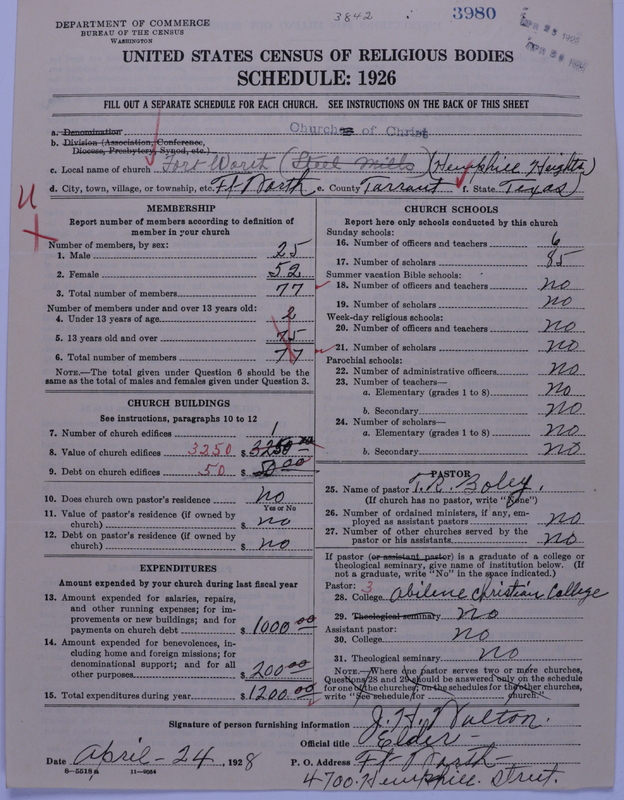 3842
3980
DEPARTMENT OF COMMERCE
BUREAU OF THE CENSUS
WASHINGTON
UNITED STATES CENSUS OF RELIGIOUS BODIES
SCHEDULE: 1926
FILL OUT A SEPARATE SCHEDULE FOR EACH CHURCH. SEE INSTRUCTIONS ON THE BACK OF THIS SHEET
a. Denomination Churches of Christ
b. Division (Association, Conference,
Diocese, Presbytery, Synod, etc.)
c. Local name of church Fort Worth (Steel Mills) (Hemphill Heights)
d. City, town, village, or township, etc. Ft Worth e. County Tarrant f. State Texas
MEMBERSHIP
Report number of members according to definition of
member in your church
Number of members, by sex:
1. Male 25
2. Female 52
3. Total number of members 77
Number of members under and over 13 years old:
4. Under 13 years of age 2
5. 13 years old and over 75
6. Total number of members 77
NOTE.—The total given under Question 6 should be
same as the total of males and females given under Question 3.
CHURCH BUILDINGS
See instructions, paragraphs 10 to 12
7. Number of church edifices 1
8. Value of church edifices 3250 $ 3250 00
9. Debt on church edifices 50 $ 50 00
10. Does church own pastor's residence no
Yes or No
11. Value of pastor's residence (if owned by
church) $ no
12. Debt on pastor's residence (if owned by
church) $ no
EXPENDITURES
Amount expended by your church during last fiscal year
13. Amount expended for salaries, repairs,
and other running expenses; for im-
provements or new buildings; and for
payments on church debt $ 1000 00
14. Amount expended for benevolences, in-
cluding home and foreign missions; for
denominational support; and for all
other purposes $ 200 00
15. Total expenditures during year $ 1200.00
CHURCH SCHOOLS
Report here only schools conducted by this church
Sunday schools:
16. Number of officers and teachers 6
17. Number of scholars 85
Summer vacation Bible schools:
18. Number of officers and teachers no
19. Number of scholars no
Week-day religious schools:
20. Number of officers and teachers no
21. Number of scholars no
Parochial schools:
22. Number of administrative officers no
23. Number of teachers—
a. Elementary (grades 1 to 8) no
b. Secondary no
24. Number of scholars—
a. Elementary (grades 1 to 8) no
b. Secondary no
PASTOR
25. Name of pastor T. R. Boley.
(If church has no pastor, write "None")
26. Number of ordained ministers, if any, em-
ployed as assistant pastors no
27. Number of other churches served by the
pastor or his assistants no
If pastor (or assistant pastor) is a graduate of a college or
theological seminary, give name of institution below. (If
not a graduate, write "No" in the space indicated.)
Pastor: 3
28. College abilene christian College
29. Theological seminary no
Assistant pastor:
30. College no
31. Theological seminary no
NOTE.—Where one pastor serves two or more churches,
Questions 28 and 29 should be answered only on the schedule
for one of the churches; on the schedules for the other churches,
write "See schedule for church."
Signature of person furnishing information J. H. Walton.
Official title Elder
Date April - 24, 1928 P. O. Address Ft Worth
4700. Hemphill Street.
8—5518a 11—9034